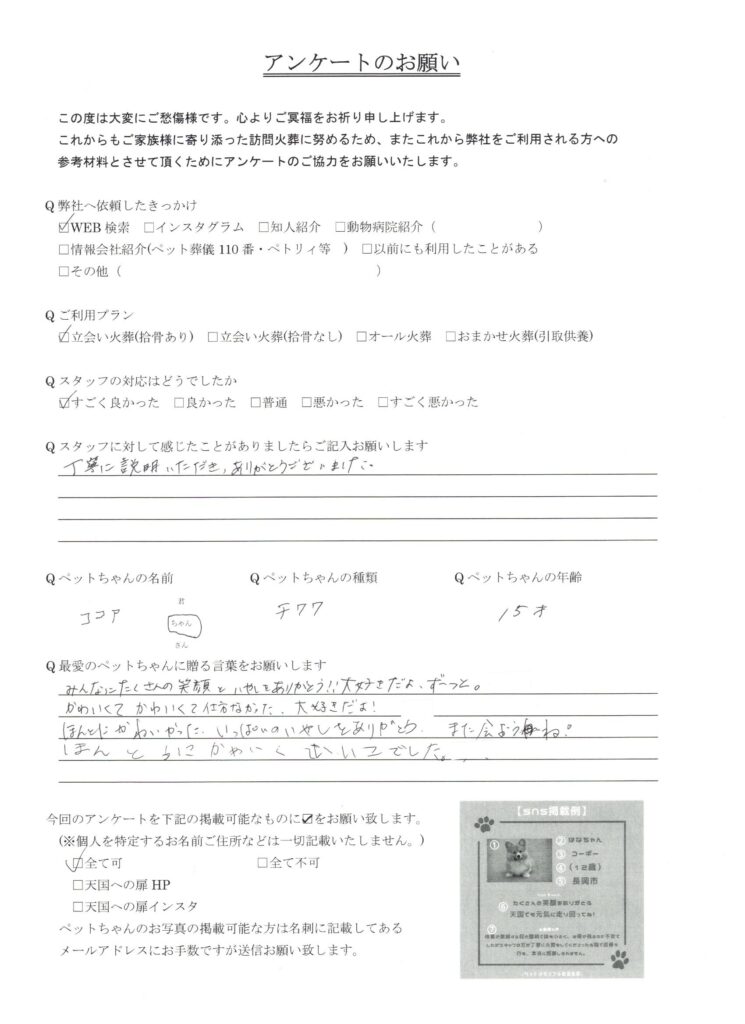 アンケートのお願い
この度は大変にご愁傷様です。心よりご冥福をお祈り申し上げます。
これからもご家族様に寄り添った訪問火葬に努めるため、またこれから弊社をご利用される方への
参考材料とさせて頂くためにアンケートのご協力をお願いいたします。
Q 弊社へ依頼したきっかけ
☑WEB 検索 □インスタグラム □知人紹介 □動物病院紹介（ ）
□情報会社紹介(ペット葬儀 110 番・ペトリィ等 ) □以前にも利用したことがある
□その他（ ）
Q ご利用プラン
☑立会い火葬(拾骨あり) □立会い火葬(拾骨なし) □オール火葬 □おまかせ火葬(引取供養)
Q スタッフの対応はどうでしたか
☑すごく良かった □良かった □普通 □悪かった □すごく悪かった
Q スタッフに対して感じたことがありましたらご記入お願いします
丁寧に説明いただき、ありがとうございました。
Q ペットちゃんの名前 Q ペットちゃんの種類 Q ペットちゃんの年齢
君
ココア ちゃん チワワ 15才
さん
Q 最愛のペットちゃんに贈る言葉をお願いします
みんなにたくさんの笑顔といやしをありがとう!!大好きだよ、ず〜っと。
かわいくて かわいくて仕方なかった、大好きだよ!
ほんとにかわいかった、いっぱいのいやしをありがとう、また会おうね!
ほんとうにかわいくていいコでした。
今回のアンケートを下記の掲載可能なものに☑をお願い致します。
(※個人を特定するお名前ご住所などは一切記載いたしません。)
☑全て可 □全て不可
□天国への扉 HP
□天国への扉インスタ
ペットちゃんのお写真の掲載可能な方は名刺に記載してある
メールアドレスにお手数ですが送信お願い致します。
【sns掲載例】
① ② はなちゃん
③ コーギー
④ (12歳)
⑤ 長岡市
⑥ たくさんの笑顔をありがとう
天国でも元気に走り回ってね!
⑦